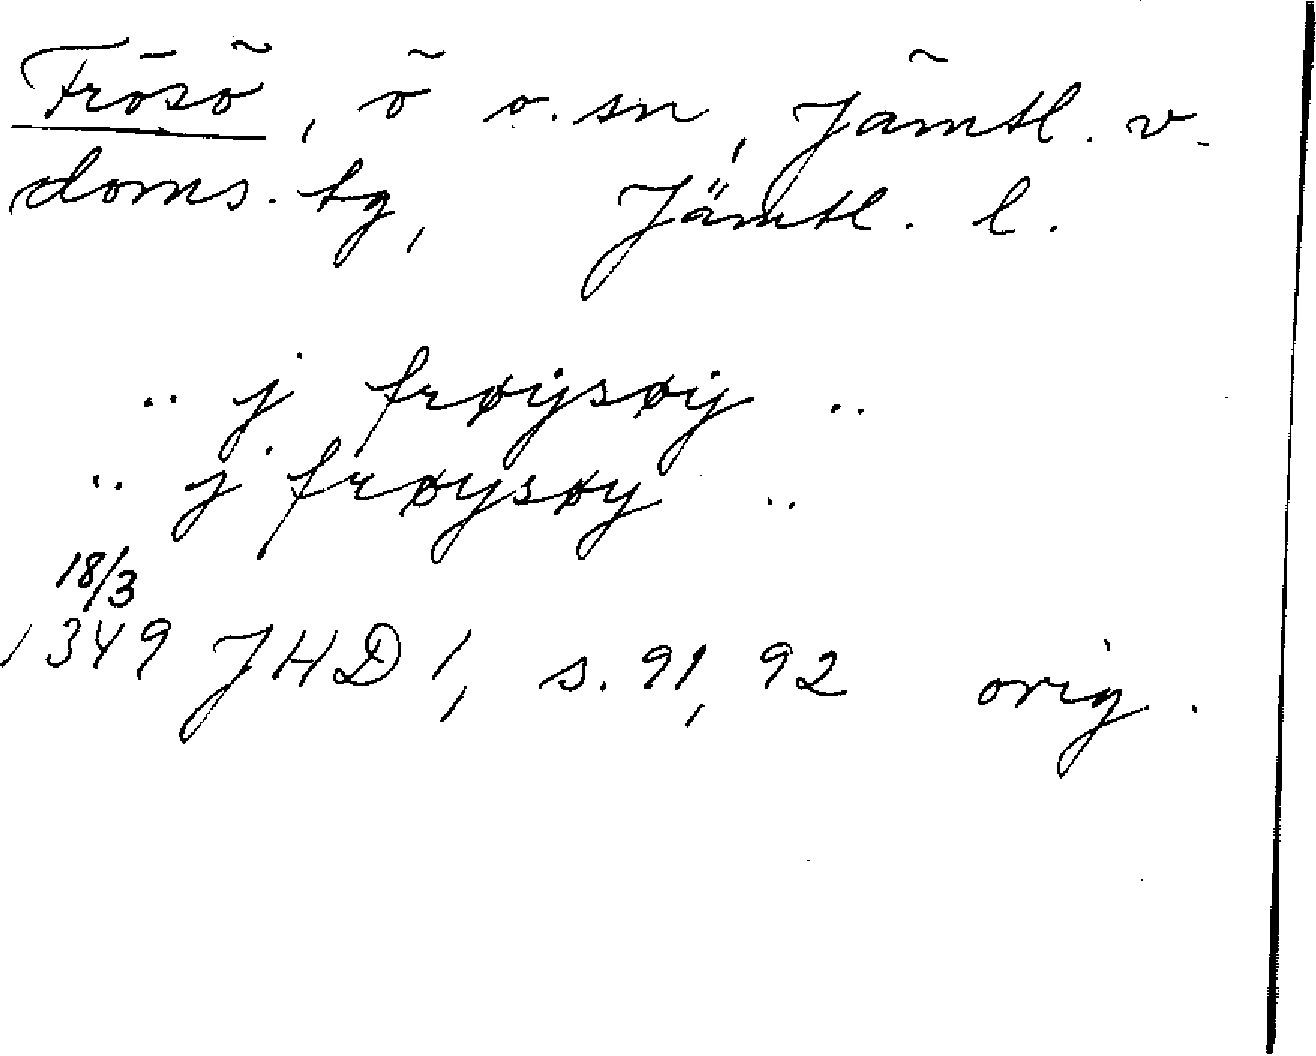 Frösö, ö o. sn, Jämtl. v.
doms. tg, Jämtl. l.
.. j frøÿsøÿ ..
.. j frøysøy ..
18/3
1349 JHD 1, s. 91, 92 orig.